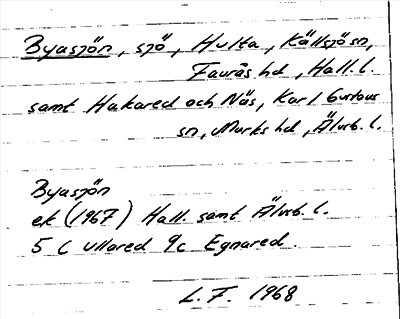 Byasjön, sjö, Hulta, Källsjö sn,
Faurås hd, Hall. l.
samt Hakared och Näs, Karl Gustavs
sn, Marks hd, Älvsb. l.
Byasjön
ek (1967) Hall. samt Älvsb. l.
5 C Ullared 9c Egnared.
L. F. 1968